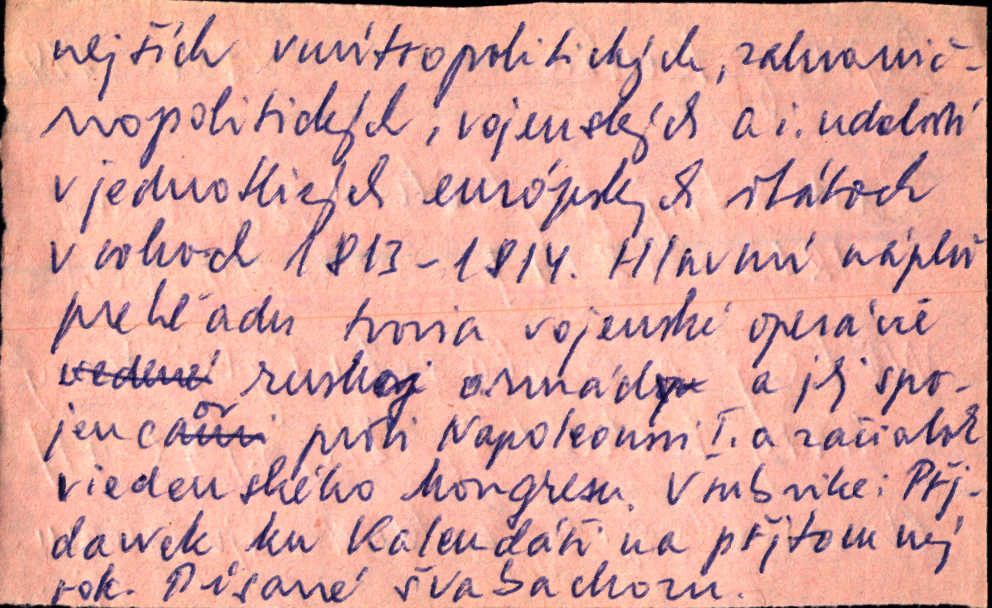 nejších vnútropolitických, zahranič-
nopolitických, vojenských a i. udalostí
v jednotlivých európskych štátoch
v rokoch 1813-1814. Hlavnú náplň
prehľadu tvoria vojenské operácie
vedené ruskej armády a jej spo-
jencov proti Napoleonovi I. a začiatok
viedenského kongresu. V rubrike: Přj-
dawek ku Kalendáři na přjtomný
rok. Písané švabachom.